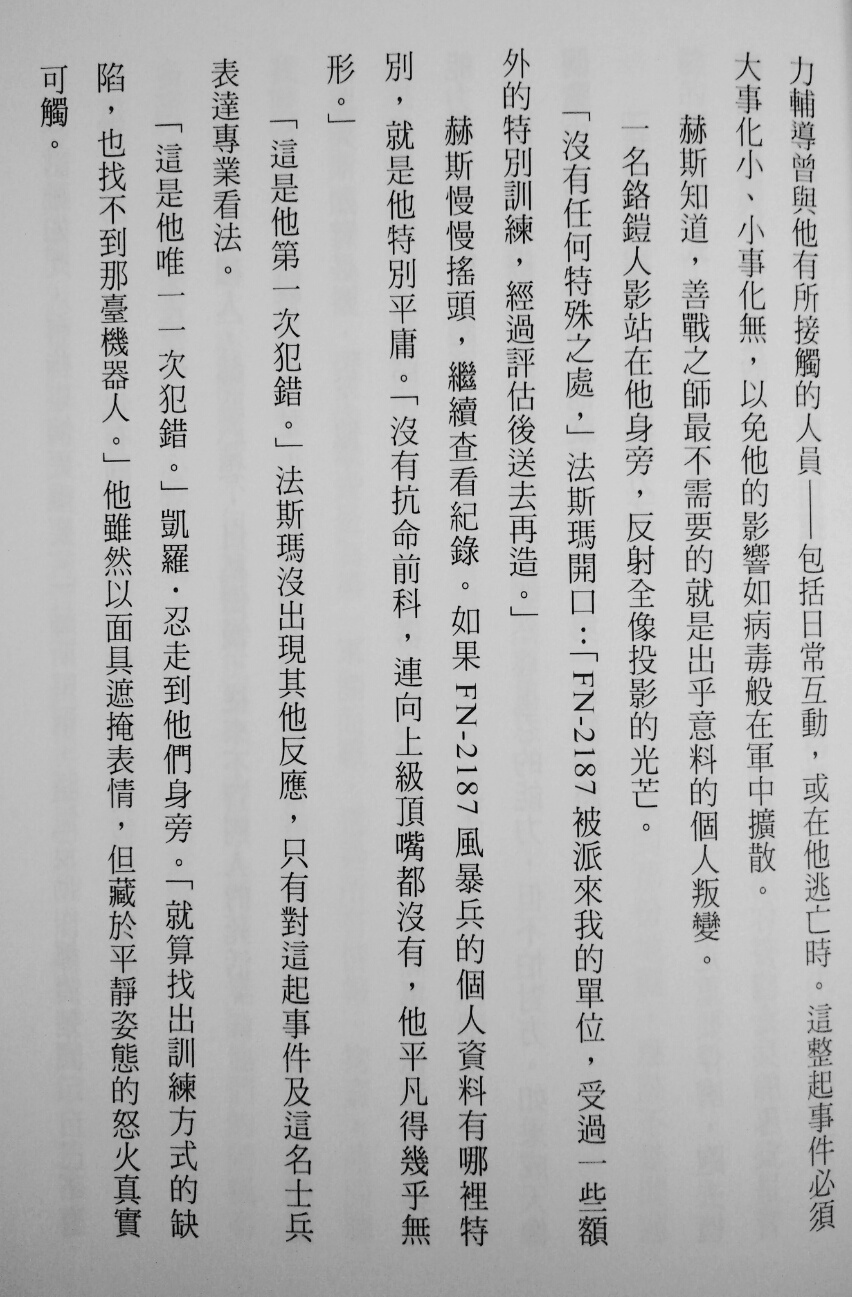 力輔導曾與他有所接觸的人員——包括日常互動，或在他逃亡時。這整起事件必須
大事化小、小事化無，以免他的影響如病毒般在軍中擴散。
赫斯知道，善戰之師最不需要的就是出乎意料的個人叛變。
一名鉻鎧人影站在他身旁，反射全像投影的光芒。
「沒有任何特殊之處，」法斯瑪開口：「FN-2187 被派來我的單位，受過一些額
外的特別訓練，經過評估後送去再造。」
赫斯慢慢搖頭，繼續查看紀錄。如果 FN-2187 風暴兵的個人資料有哪裡特
別，就是他特別平庸。「沒有抗命前科，連向上級頂嘴都沒有，他平凡得幾乎無
形。」
「這是他第一次犯錯。」法斯瑪沒出現其他反應，只有對這起事件及這名士兵
表達專業看法。
「這是他唯一一次犯錯。」凱羅．忍走到他們身旁。「就算找出訓練方式的缺
陷，也找不到那臺機器人。」他雖然以面具遮掩表情，但藏於平靜姿態的怒火真實
可觸。